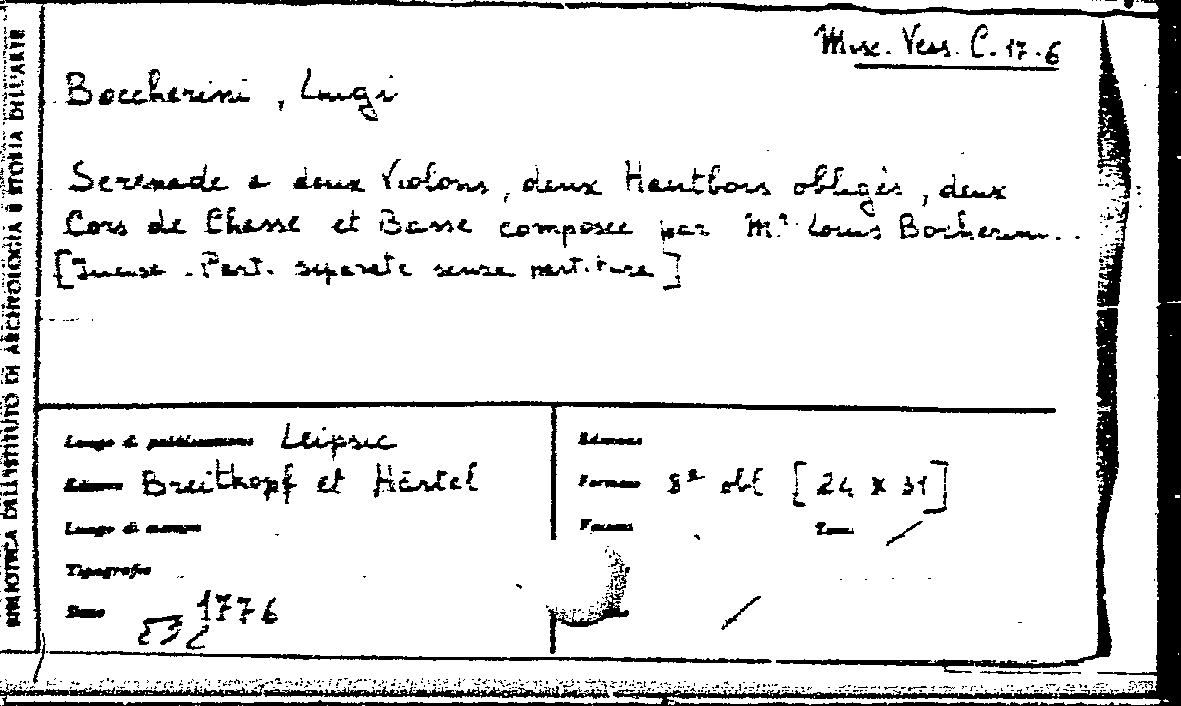 Mus. Vess. C. 17-6
BIBLIOTECA DELL'ISTITUTO DI ARCHEOLOGIA E STORIA DELL'ARTE
Boccherini, Luigi
Serenade a deux Violons, deux Hautbois obligès, deux
Cors de Chasse et Basse composee par M.r Louis Bocherini..
[Incuse. Part. separate senza partitura]
Luogo di pubblicazione Leipsic
Editore Breitkopf et Härtel
Luogo di stampa
Tipografia
Data 1776
Edizione
Formato 8º obl [24 x 31]